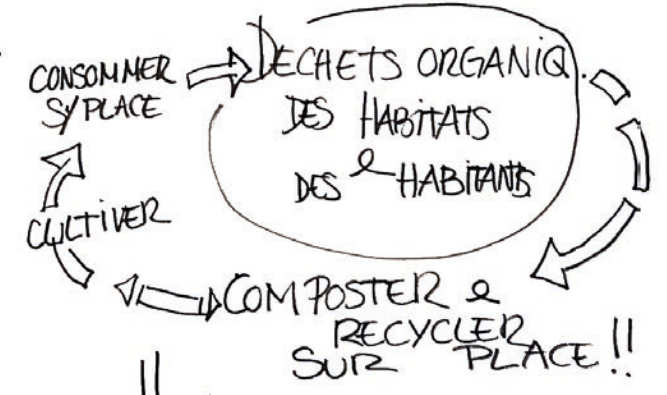 CONSOMMER
S/PLACE
DECHETS ORGANIQ.
DES HABITATS
DES & HABITANTS
CULTIVER
COMPOSTER &
RECYCLER
SUR PLACE !!
!!